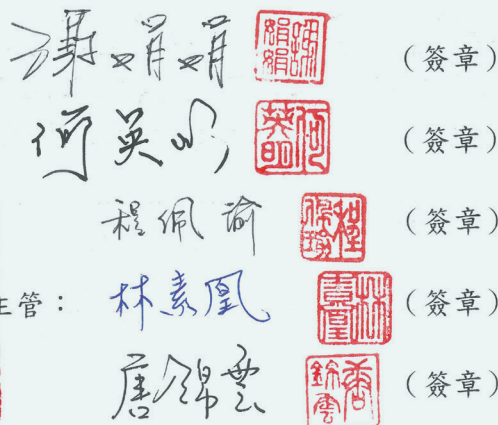 謝娟娟 謝娟娟 (簽章)
何英明 何英明 (簽章)
程佩瑜 程佩瑜 (簽章)
主管: 林素凰 林素凰 (簽章)
唐錦雲 唐錦雲 (簽章)